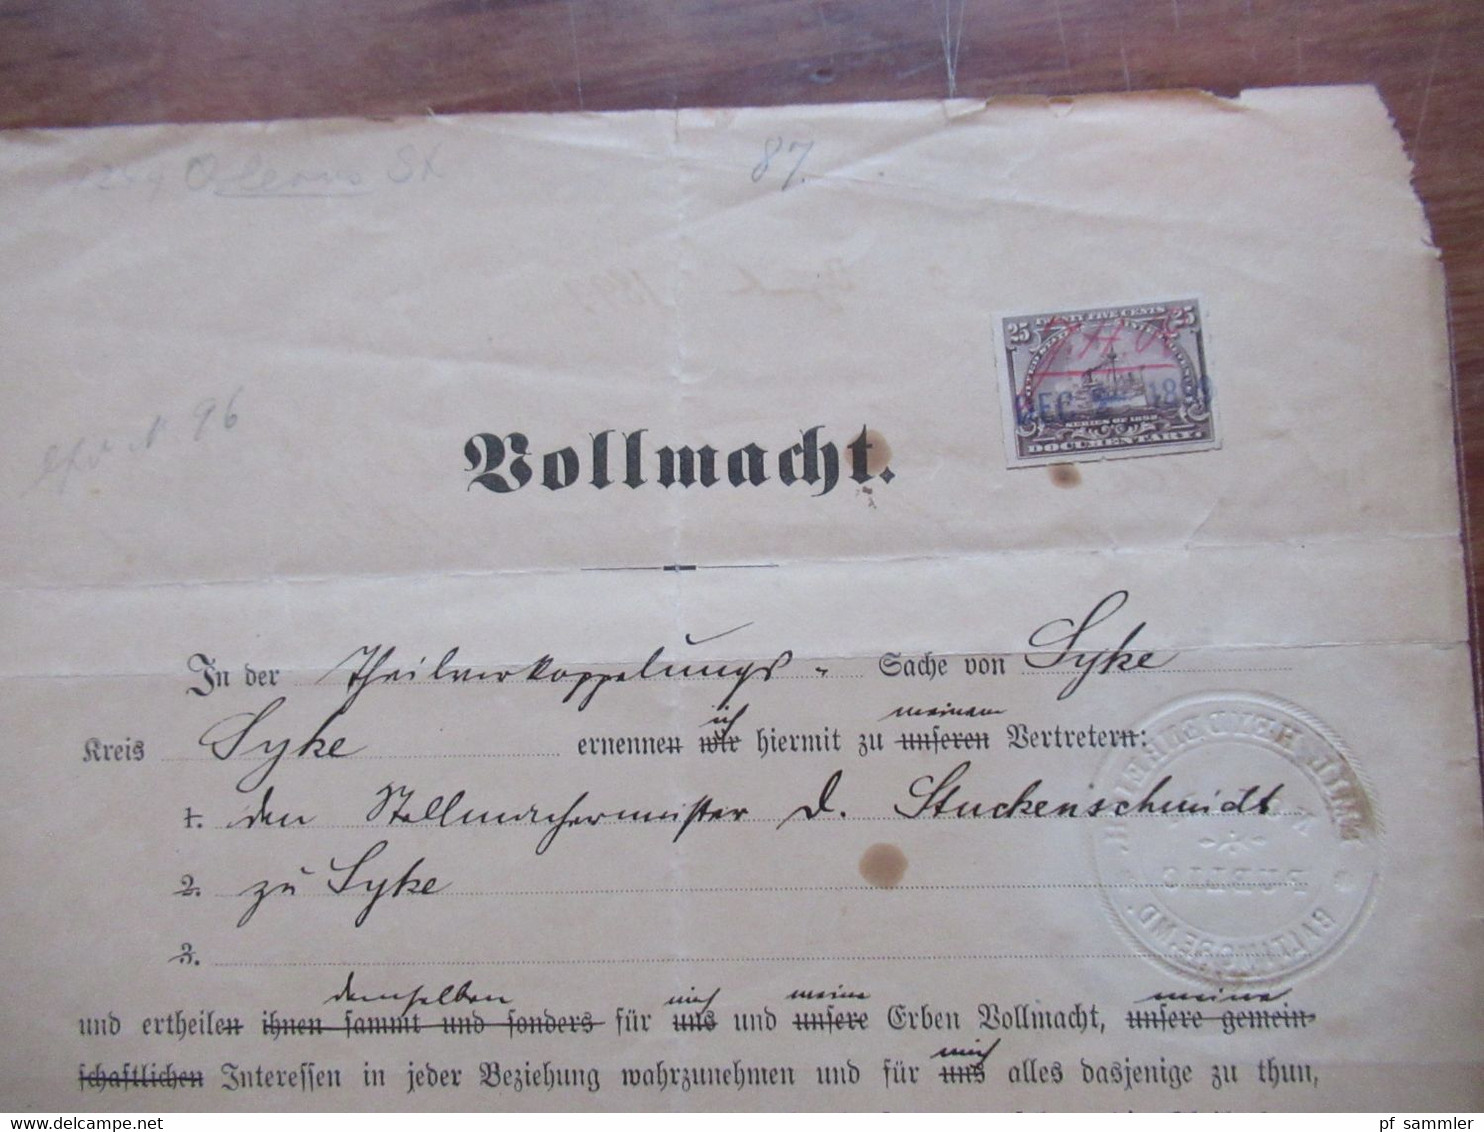 St
87.
96
25 TWENTY FIVE CENTS 25
DEC 2 1899
SERIES OF 1898
DOCUMENTARY
Vollmacht.
In der Theilverkoppelungs- Sache von Syke
ich meinem
Kreis Syke ernennen wir hiermit zu unseren Vertretern:
1. den Stellmachermeister D. Stuckenschmidt
2. zu Syke
3.
demselben mich meine meine
und ertheilen ihnen sammt und sonders für uns und unsere Erben Vollmacht, unsere gemein-
mich
schaftlichen Interessen in jeder Beziehung wahrzunehmen und für uns alles dasjenige zu thun,
PUBLIC
BALTIMORE, MD.
pf sammler